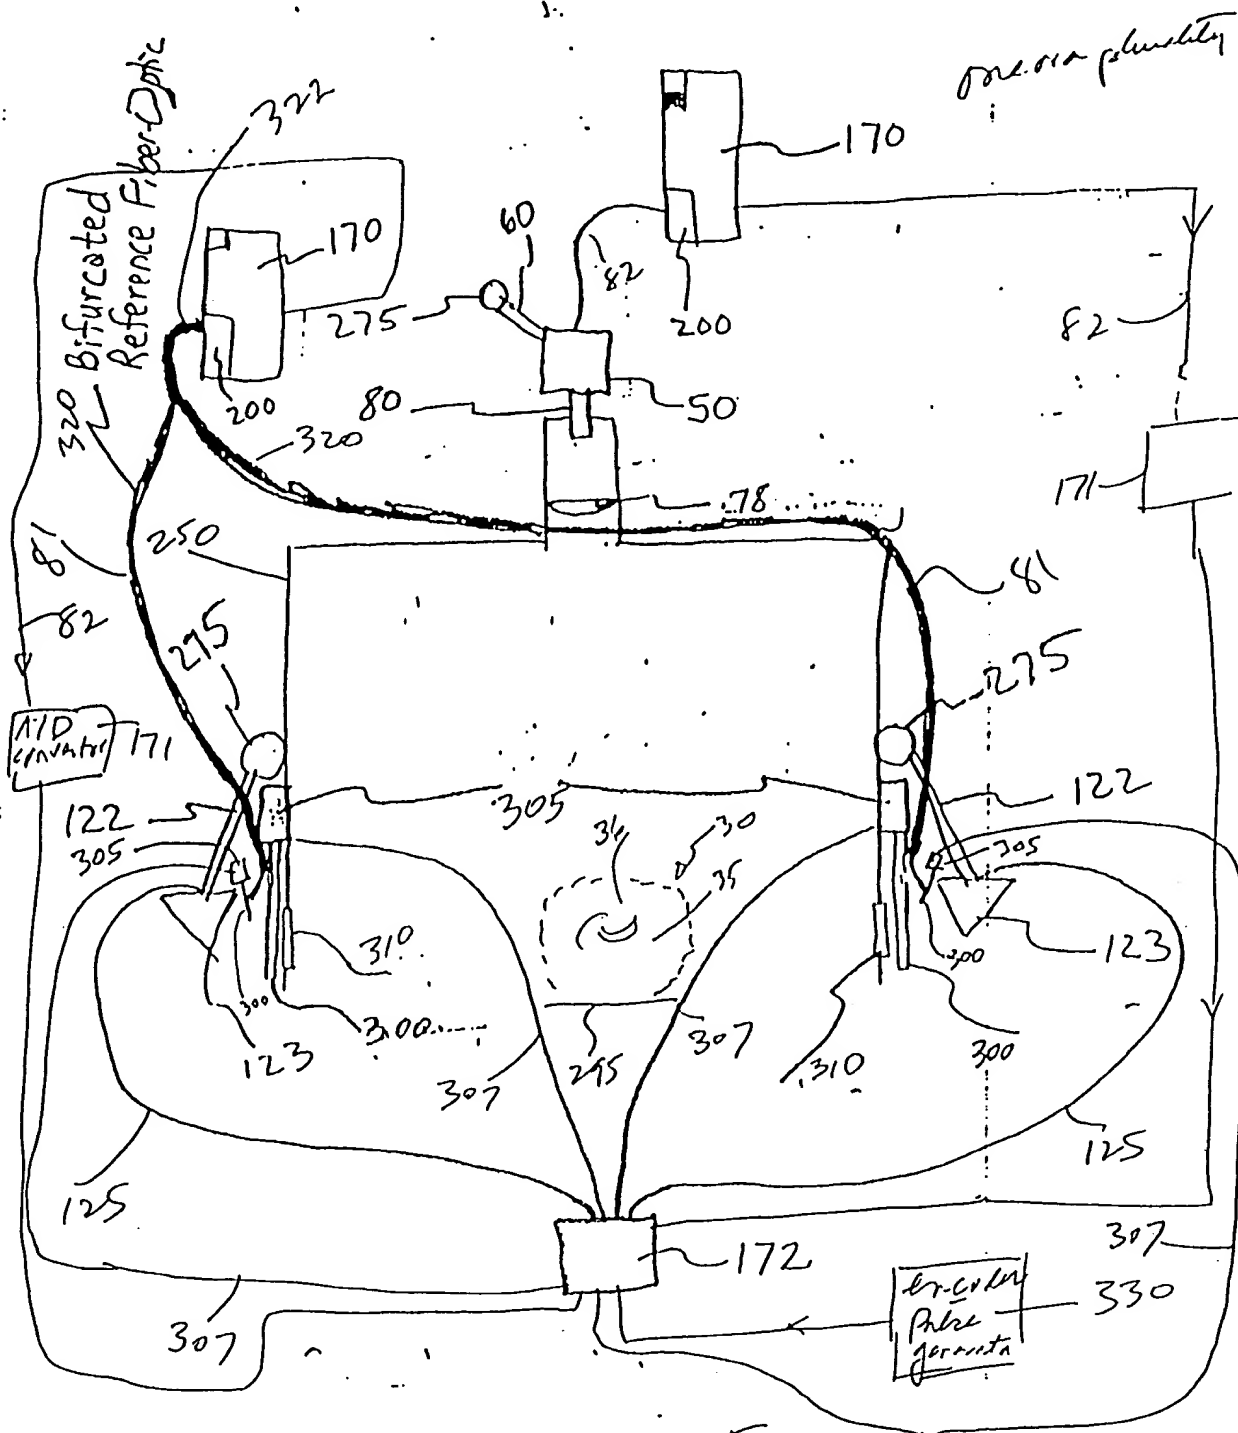 one or a plurality
Bifurcated
Reference Fiber-Optic
322
170
170
60
82
275
200
82
200
80
50
320
320
78
171
81
250
81
82
275
275
A/D
converter
171
122
305
122
305
34
30
35
305
310
300
123
300
300
123
307
295
307
310
300
125
125
172
307
307
encoder
Pulse
generator
330